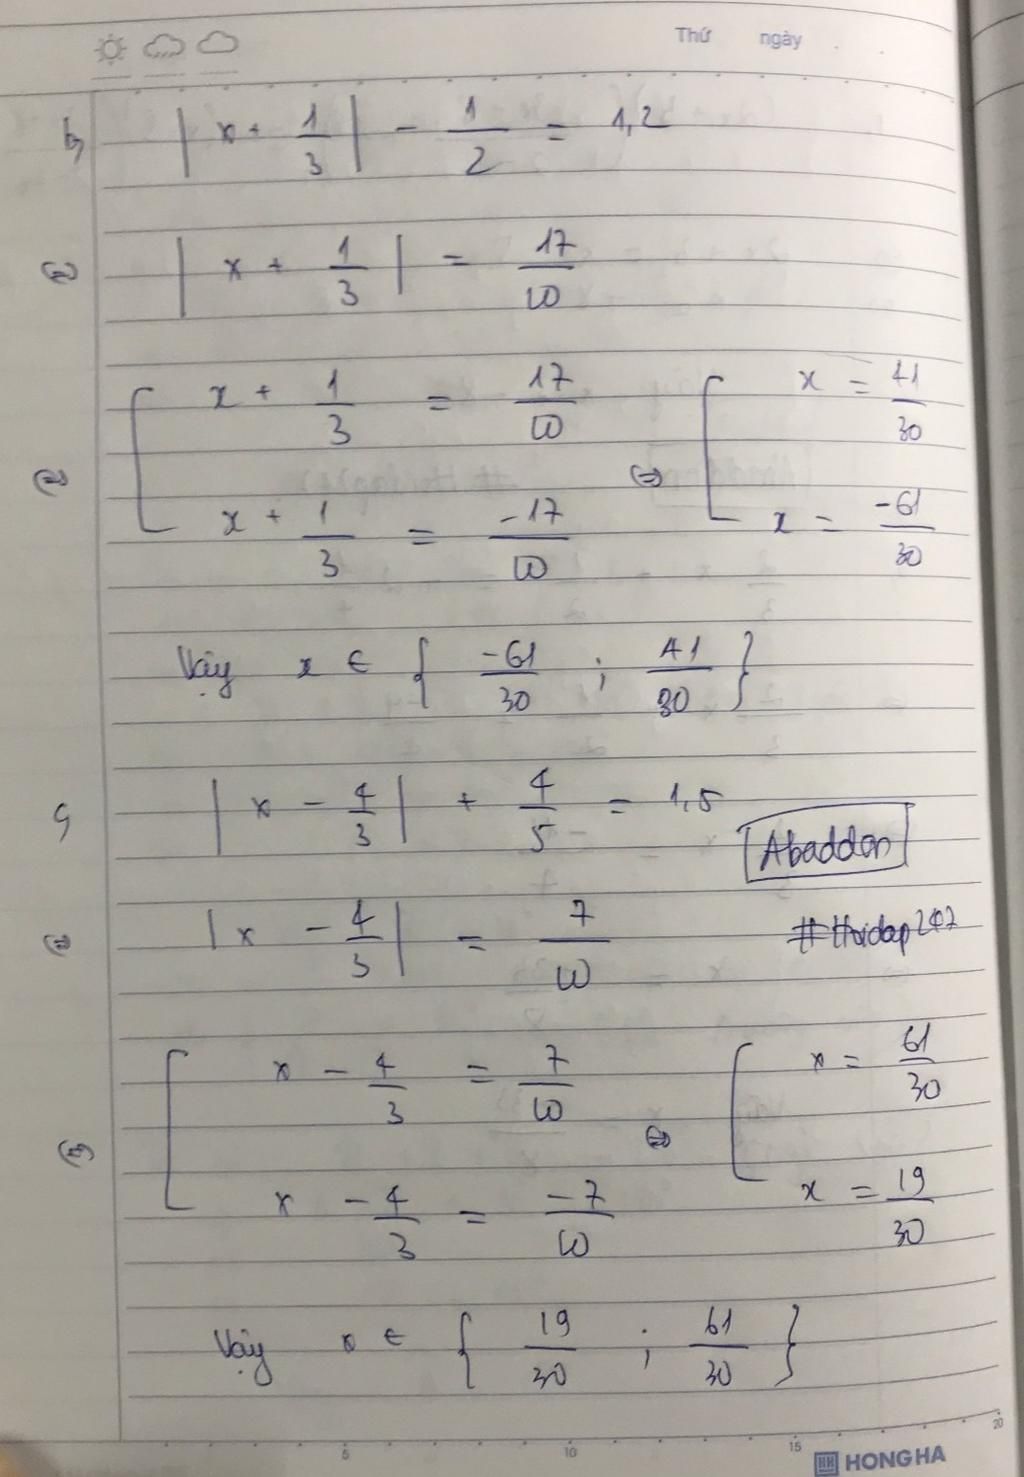 Thứ ngày
b, |x + 1/3| - 1/2 = 1,2
⇔ |x + 1/3| = 17/10
⇔ [ x + 1/3 = 17/10 ⇔ [ x = 41/30
x + 1/3 = -17/10 x = -61/30
Vậy x ∈ { -61/30 ; 41/30 }
c, |x - 4/3| + 4/5 = 1,5
Abaddon
⇔ |x - 4/3| = 7/10 #Hoidap247
⇔ [ x - 4/3 = 7/10 ⇔ [ x = 61/30
x - 4/3 = -7/10 x = 19/30
Vậy x ∈ { 19/30 ; 61/30 }
5 10 15 20
HH HONG HA